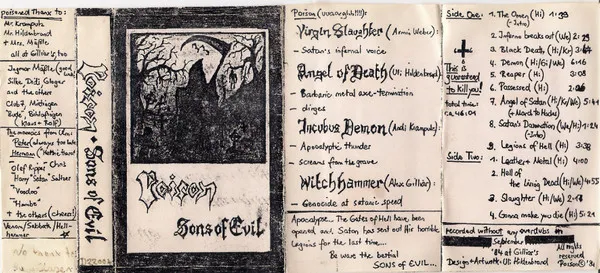 poisoned Thanx to:
Mr. Krampulz
Mr. Hildenbrand
+ Mrs. Mäßle
all at Gilliar's, too
Jaymar Mäßle (good
Silke, Didi, Gloger
and the others
Club 7, Mietingen
"Bude", Bihlafingen
(Klaus + Rolf)
The maniacs from Ulm:
Peter (always too late)
Hermann ("Nothie Band")
"Olaf Kipper" Chris
"Hans" "Satan" Saltzer
"Voodoo"
"Hombe"
+ the others (cheers!)
Venom/Sabbath/Hell-
hammer
No thanx to:
Poison · Sons of Evil
Poison
Sons of Evil
Poison (uuaarrghh!!!!):
Virgin Slaughter (Armin Weber):
- Satan's infernal voice
Angel of Death (Uli Hildenbrand):
- Barbaric metal axe-termination
- dirges
Incubus Demon (Andi Krampulz):
- Apocalyptic thunder
- screams from the grave
Witchhammer (Alex Gilliar):
- Genocide at satanic speed
Apocalypse... The Gates of Hell have been
opened, and Satan has sent out His horrible
legions for the last time...
Be was the bertial
SONS OF EVIL...
Side One:
This is
guaranteed
to kill you!
total time:
ca. 46:01
1. The Omen (Hi) 1:39
(-Intro)
2. Inferno breaks out (We) 2:23
3. Black Death (Hi/Kr) 3:64
4. Demon (Hi/Gi/We) 6:16
5. Reaper (Hi) 3:08
6. Possessed (Hi) 2:26
7. Angel of Satan (Hi/Kr/We) 5:41
(+ March to Hades)
8. Satan's Damnation (We/Hi) 1:24
(-Intro)
9. Legions of Hell (Hi) 3:38
Side Two:
1. Leather + Metal (Hi) 4:00
2. Hall of
the Living Dead (Hi/We) 4:55
3. Slaughter (Hi/We) 2:18
4. Gonna make you die (Hi) 5:21
recorded without any overdubs in
September
'84 at Gilliar's
Design + Artwork: Uli Hildenbrand
Poison © '84